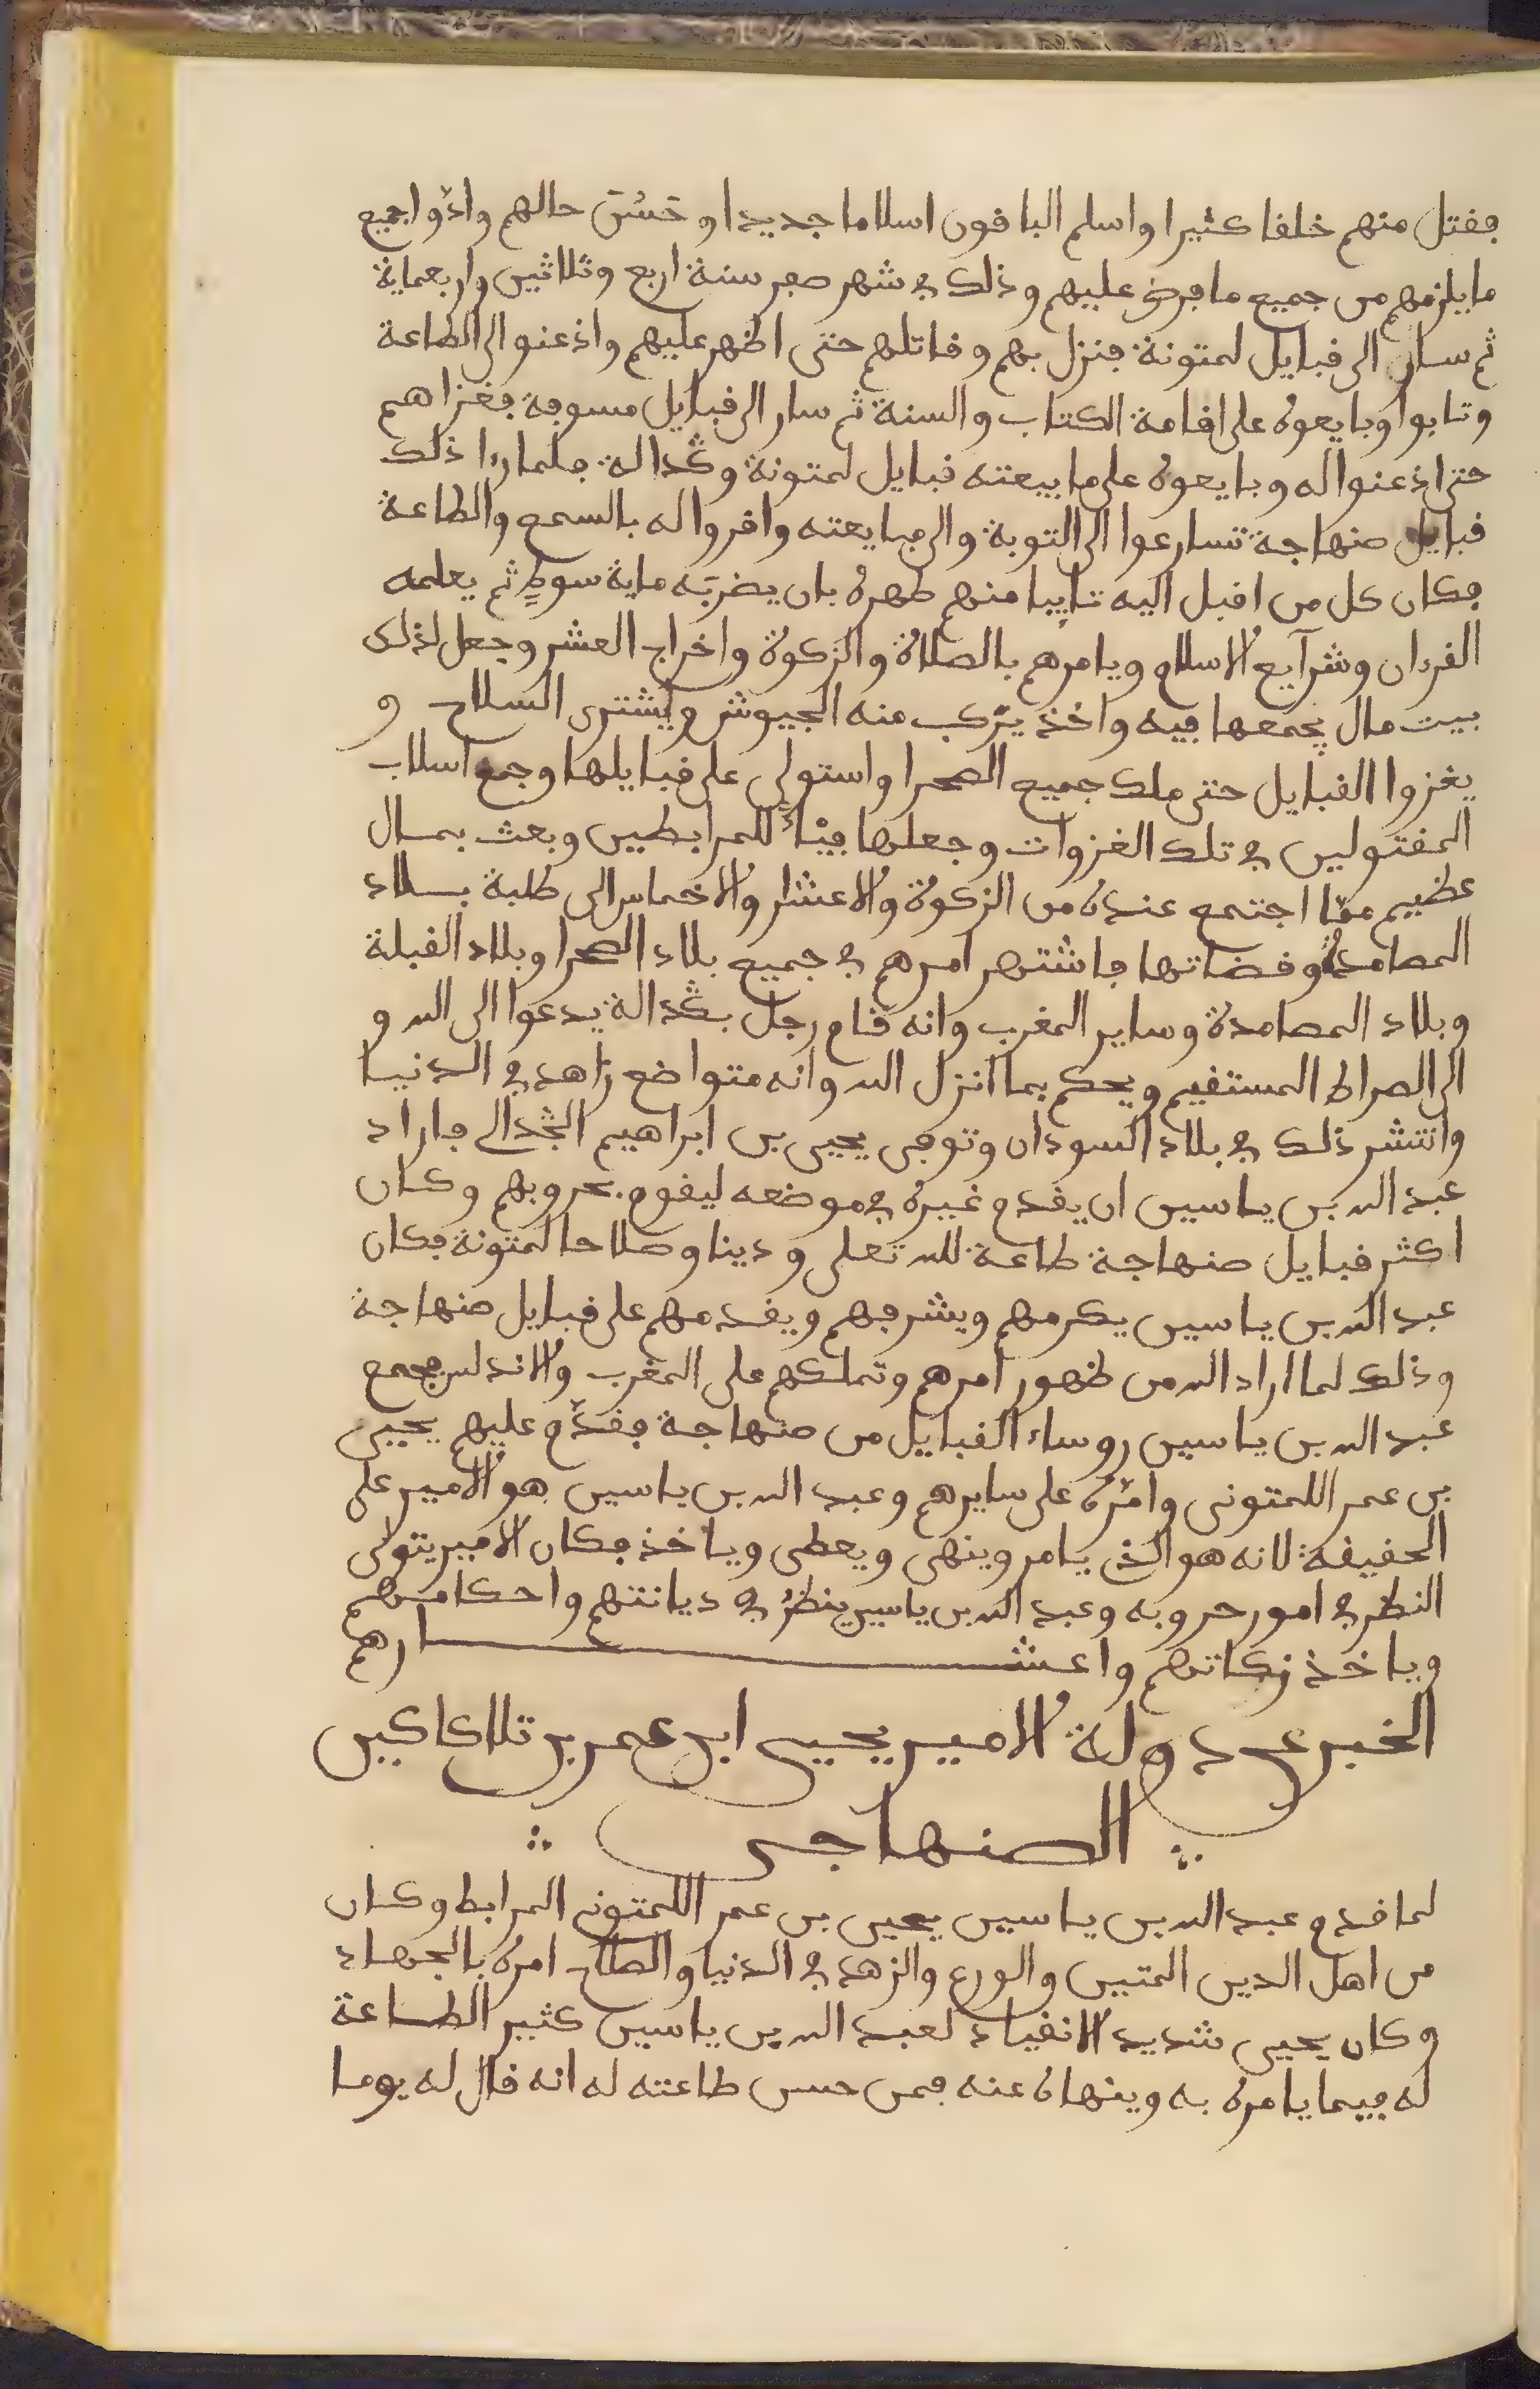 فقتل منهم خلقا كثيرا واسلم الباقون اسلاما جديدا وحَسُنَ حالهم وادّوا جميع
ما يلزمهم من جميع ما فرض عليهم وذلك في شهر صفر سنة اربع وثلاثين واربعماية
ثم سار الى قبايل لمتونة فنزل بهم وقاتلهم حتى اظهر عليهم واذعنوا الى الطاعة
وتابوا وبايعوه على اقامة الكتاب والسنة ثم سار الى قبايل مسوفة فغزاهم
حتى اذعنوا له وبايعوه على ما بيعته قبايل لمتونة وڭدالة فلما راا ذلك
قبايل صنهاجة تسارعوا الى التوبة والى مبايعته واقروا له بالسمع والطاعة
فكان كل من اقبل اليه تايبا منهم طهره بان يضربَه ماية سوطٍ ثم يعلمه
القرءان وشرآيع الاسلام ويامرهم بالصلاة والزكوة واخراج العشر وجعل لذلك
بيت مال يجمعها فيه واخذ يرّكب منه الجيوش ويشترى السلاح و
يغزوا القبايل حتى ملك جميع الصحرا واستولى على قبايلها وجمع اسلاب
المقتولين في تلك الغزوات وجعلها فيْئاً للمرابطين وبعث بمال
عظيم ممّا اجتمع عنده من الزكوة والاعشار والاخماس الى طلبة بلاد
المصامدة وقضاتها فاشتهر امرهم في جميع بلاد الصحرا وبلاد القبلة
وبلاد المصامدة وساير المغرب وانه قام رجل بڭدالة يدعوا الى الله و
الى الصراط المستقيم ويحكم بما انزل الله وانه متواضع زاهد في الدنيا
وانتشر ذلك في بلاد السودان وتوفى يحيى بن ابراهيم الڭدالي فاراد
عبد الله بن ياسين ان يقدم غيره في موضعه ليقوم بحروبهم وكان
اكثر قبايل صنهاجة طاعة لله تعلى ودينا وصلاحا لمتونة فكان
عبد الله بن ياسين يكرمهم ويشرفهم ويقدمهم على قبايل صنهاجة
وذلك لما اراد الله من ظهور امرهم وتملكهم على المغرب والاندلس فجمع
عبد الله بن ياسين روساء القبايل من صنهاجة فقدّم عليهم يحيى
بن عمر اللمتونى وامّره على سايرهم وعبد الله بن ياسين هو الامير على
الحقيقة لانه هو الذي يامر وينهى ويعطى وياخذ فكان الامير يتولى
النظر في امور حروبه وعبد الله بن ياسين ينظرُ في ديانتهم واحكامهم
وياخذ زكاتهم واعشارهم
الخبر عن دولة الامير يحيى ابن عمر بن تلاكاكين
الصنهاجى
لما قدم عبد الله بن ياسين يحيى بن عمر اللمتوني المرابط وكان
من اهل الدين المتين والورع والزهد في الدنيا والصلاح امره بالجهاد
وكان يحيى شديد الانقياد لعبد الله بن ياسين كثير الطاعة
له فيما يامره به وينهاه عنه فمن حسن طاعته له انه قال له يوما